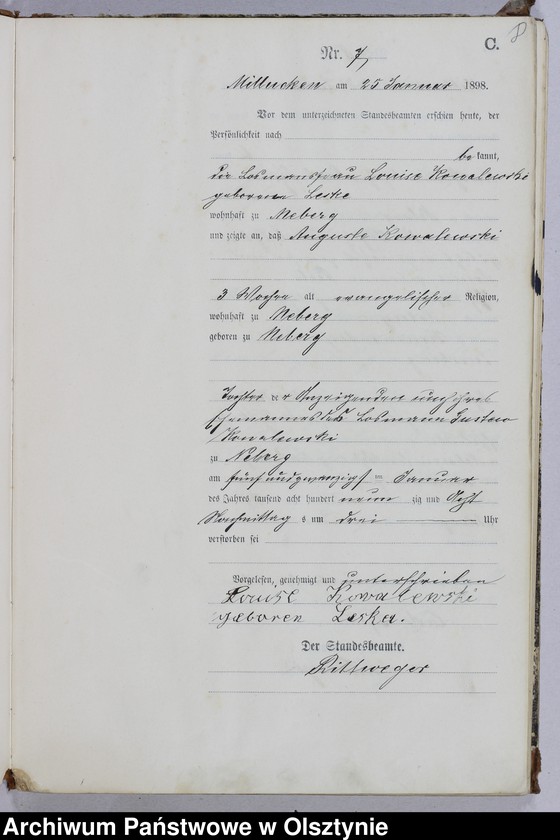 C.
8
Nr. 7,
Millucken am 25 Januar 1898.
Vor dem unterzeichneten Standesbeamten erschien heute, der
Persönlichkeit nach
bekannt,
die Losmannsfrau Louise Kowalewski
geborene Leske
wohnhaft zu Neberg
und zeigte an, daß Auguste Kowalewski
3 Wochen alt evangelischer Religion,
wohnhaft zu Neberg
geboren zu Neberg
Tochter der Anzeigenden und ihres
Ehemannes des Losmann Gustav
Kowalewski
zu Neberg
am fünfundzwanzigst = Januar
des Jahres tausend acht hundert neunzig und Acht
Nachmittags um drei Uhr
verstorben sei
Vorgelesen, genehmigt und unterschrieben
Louise Kowalewski
geboren Leska.
Der Standesbeamte.
Rittweger
Archiwum Państwowe w Olsztynie